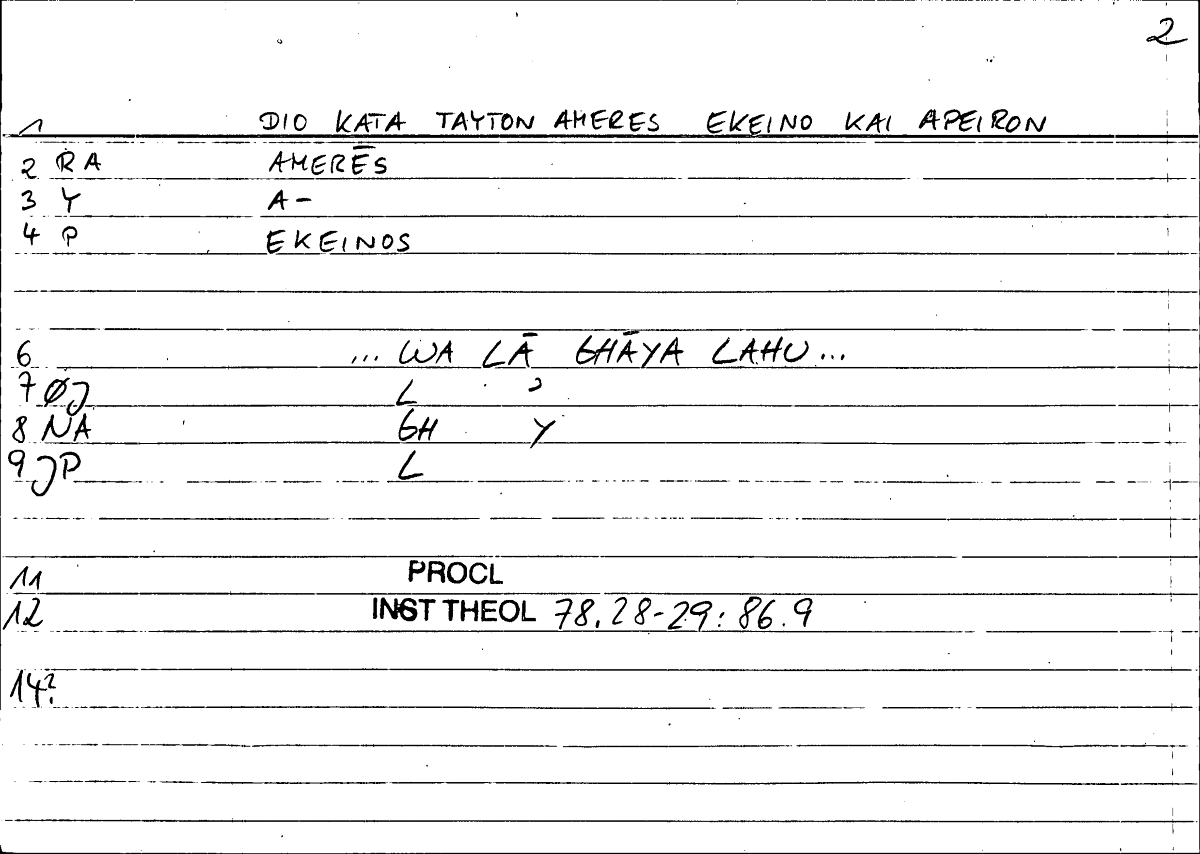 2
1 DIO KATA TAYTON AMERES EKEINO KAI APEIRON
2 RA AMERĒS
3 Y A-
4 P EKEINOS
6 ... WA LĀ GHĀYA LAHU ...
7 ØJ L ʾ
8 NA GH Y
9 JP L
11 PROCL
12 INST THEOL 78.28-29: 86.9
14?